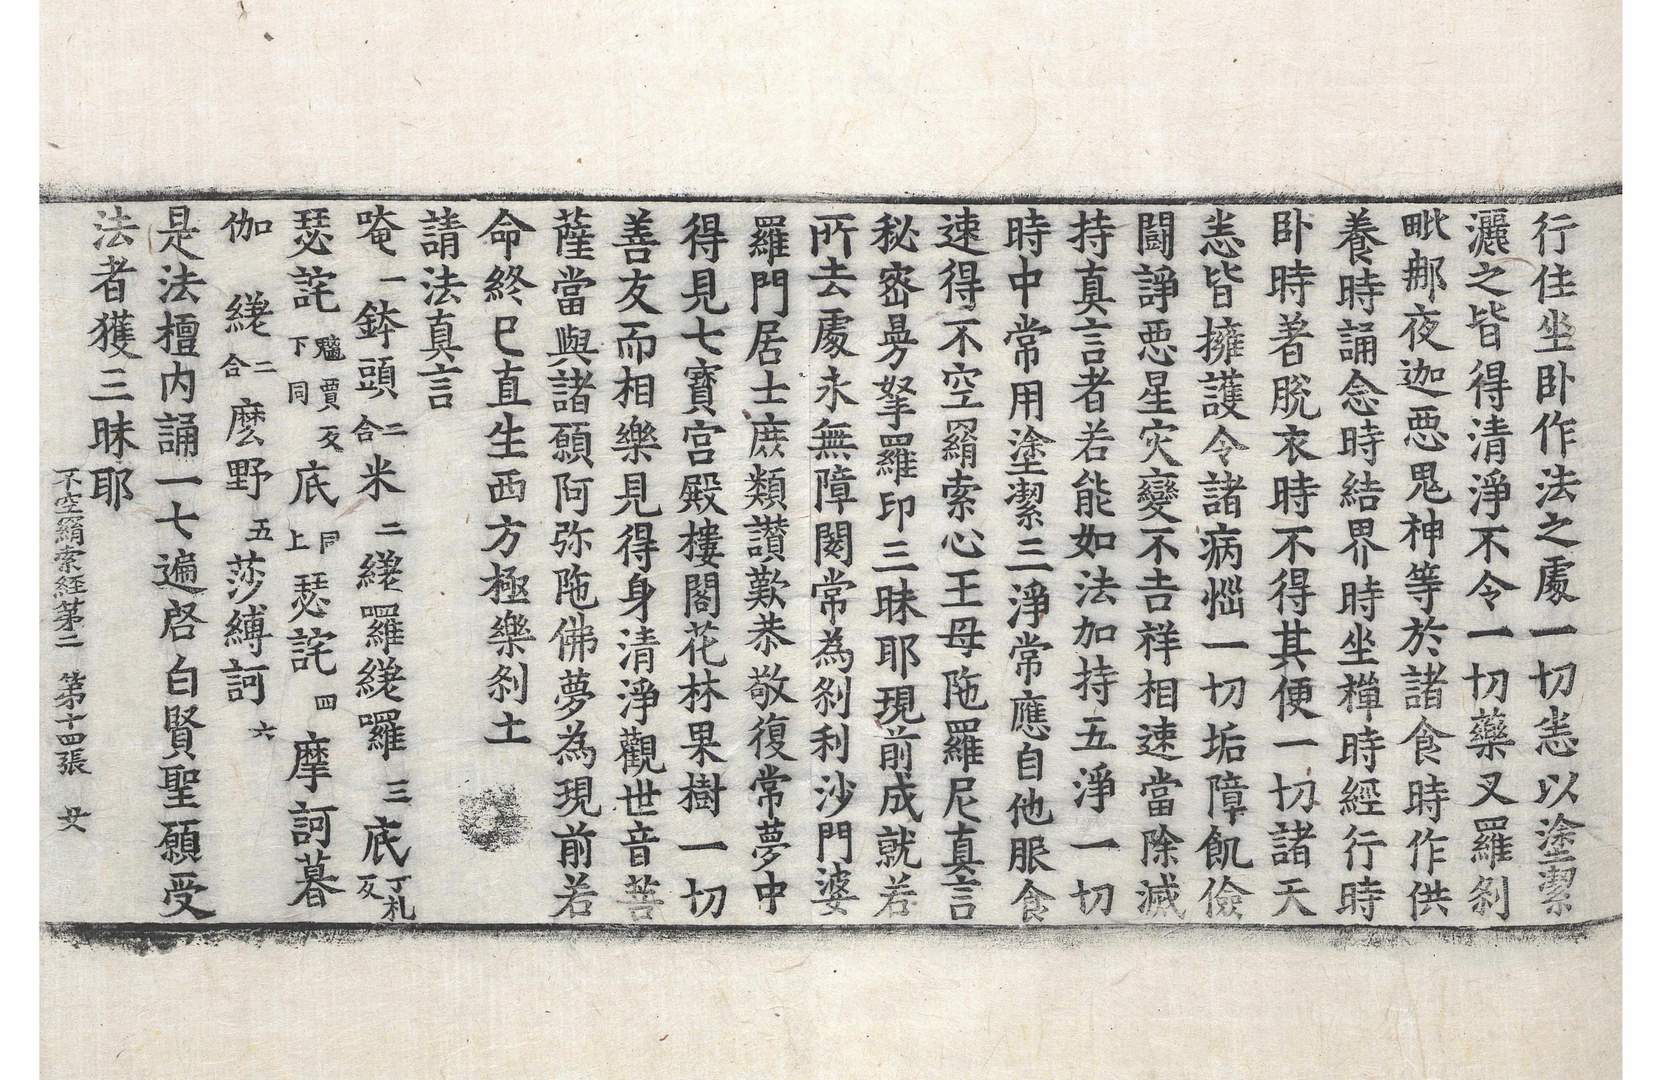 行住坐卧作法之處一切恙以塗潔
灑之皆得清淨不令一切藥叉羅剎
毗那夜迦惡鬼神等於諸食時作供
養時誦念時結界時坐禪時經行時
卧時著脫衣時不得其便一切諸天
恙皆擁護令諸病惱一切垢障飢儉
鬪諍惡星灾變不吉祥相速當除滅
持真言者若能如法加持五淨一切
時中常用塗潔三淨常應自他服食
速得不空羂索心王母陁羅尼真言
秘密曼拏羅印三昧耶現前成就若
所去處永無障閡常為剎利沙門婆
羅門居士庶類讃歎恭敬復常夢中
得見七寶宮殿樓閣花林果樹一切
善友而相樂見得身清淨觀世音菩
薩當與諸願阿弥陁佛夢為現前若
命終已直生西方極樂剎土
請法真言
唵一鉢頭二合米二 㜸囉㜸囉三底丁札反
瑟詑魑賈反下同底同上瑟詑四摩訶暮
伽㜸二合麽野五莎縛訶六
是法檀內誦一七遍啓白賢聖願受
法者獲三昧耶
不空羂索經第二 第十四張 廿